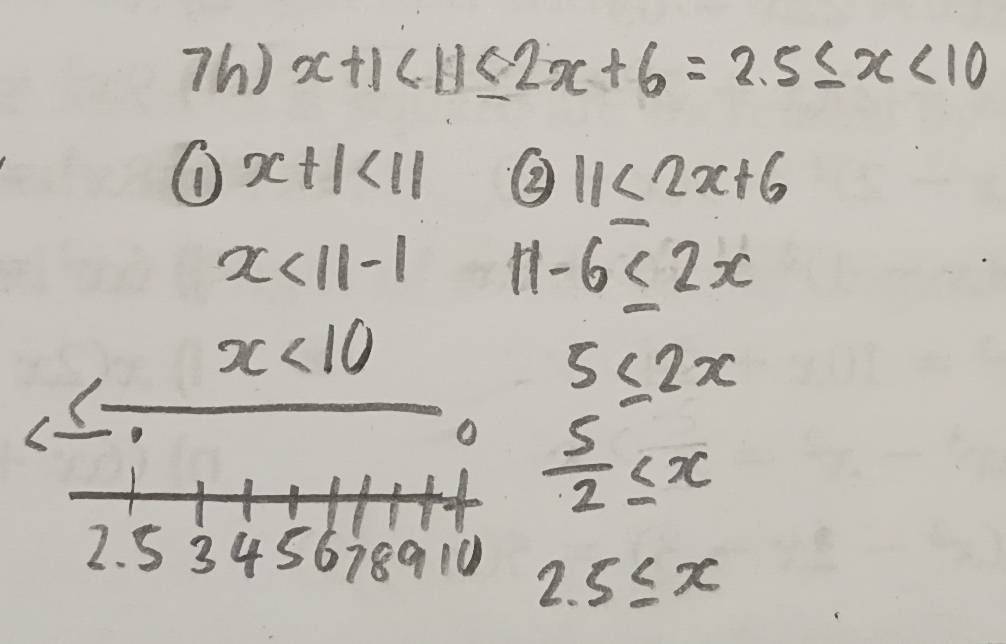 7h) x+1<11≤2x+6 = 2.5≤x<10
① x+1<11
x<11-1
x<10
② 11≤2x+6
11-6≤2x
5≤2x
5/2≤x
2.5≤x
2.5 3 4 5 6 7 8 9 10